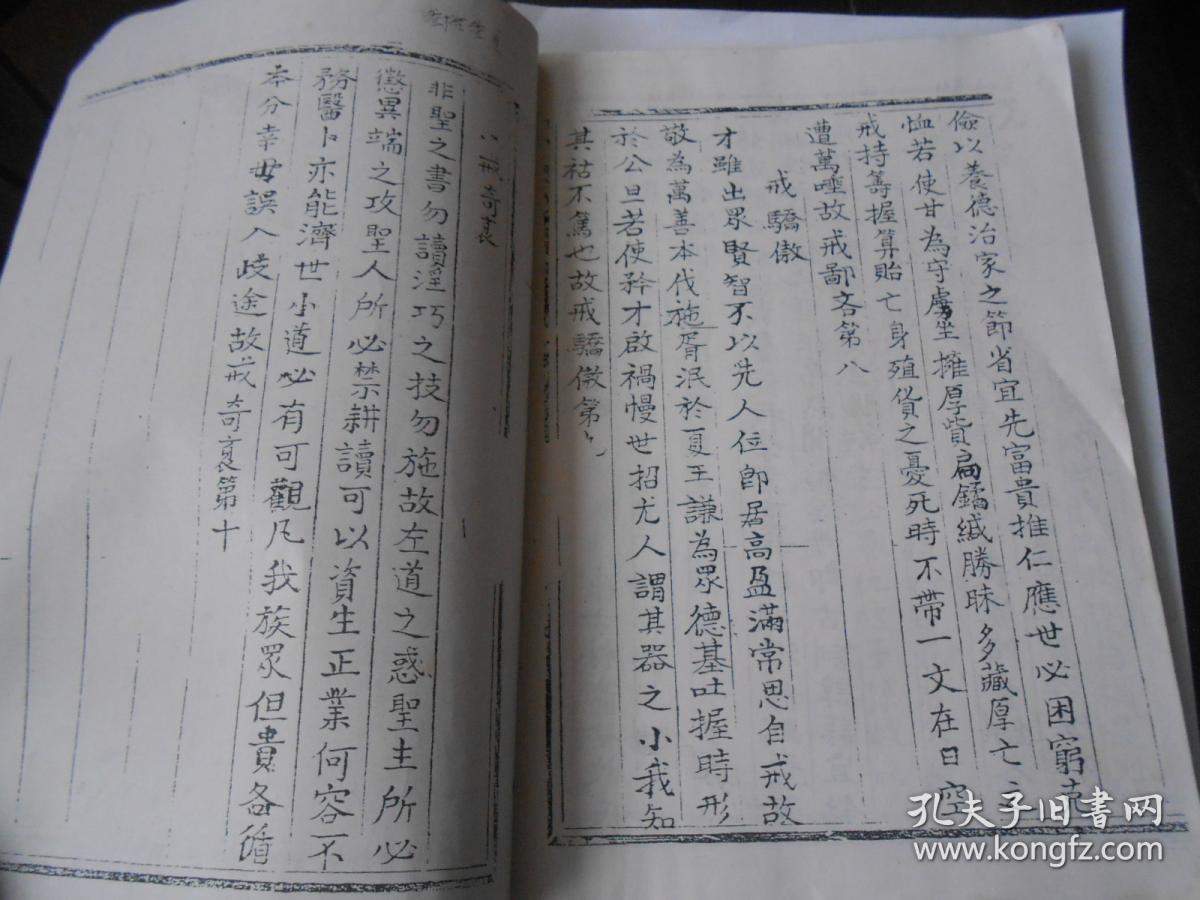 儉以養德治家之節省宜先富貴推仁應世必困窮克
恤若使甘為守虜坐擁厚貲扃鐍緘勝昧多藏厚亡之
戒持籌握算貽亡身殖貨之憂死時不帶一文在日空
遭萬唾故戒鄙吝第八
戒驕傲
才雖出眾賢智不以先人位卽居高盈滿常思自戒故
敬為萬善本伐施胥泯於夏王謙為眾德基吐握時形
於公旦若使矜才啟禍慢世招尤人謂其器之小我知
其祜不篤也故戒驕傲第
戒奇袤
非聖之書勿讀淫巧之技勿施故左道之惑聖主所必
懲異端之攻聖人所必禁耕讀可以資生正業何容不
務醫卜亦能濟世小道必有可觀凡我族眾但貴各循
本分幸毋誤入歧途故戒奇袤第十
孔夫子旧书网
www.kongfz.com